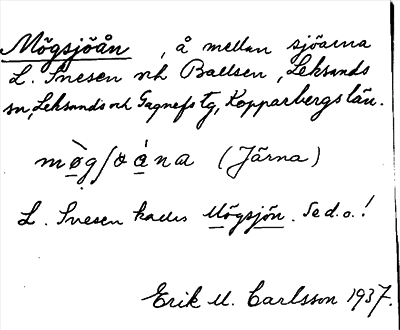 Mögsjöån, å mellan sjöarna
L. Snesen och Ballsen, Leksands
sn, Leksands och Gagnefs tg, Kopparbergs län.
mo̤gʃoána (Järna)
L. Snesen kallas Mögsjön. Se d.o.!
Erik M. Carlsson 1937.